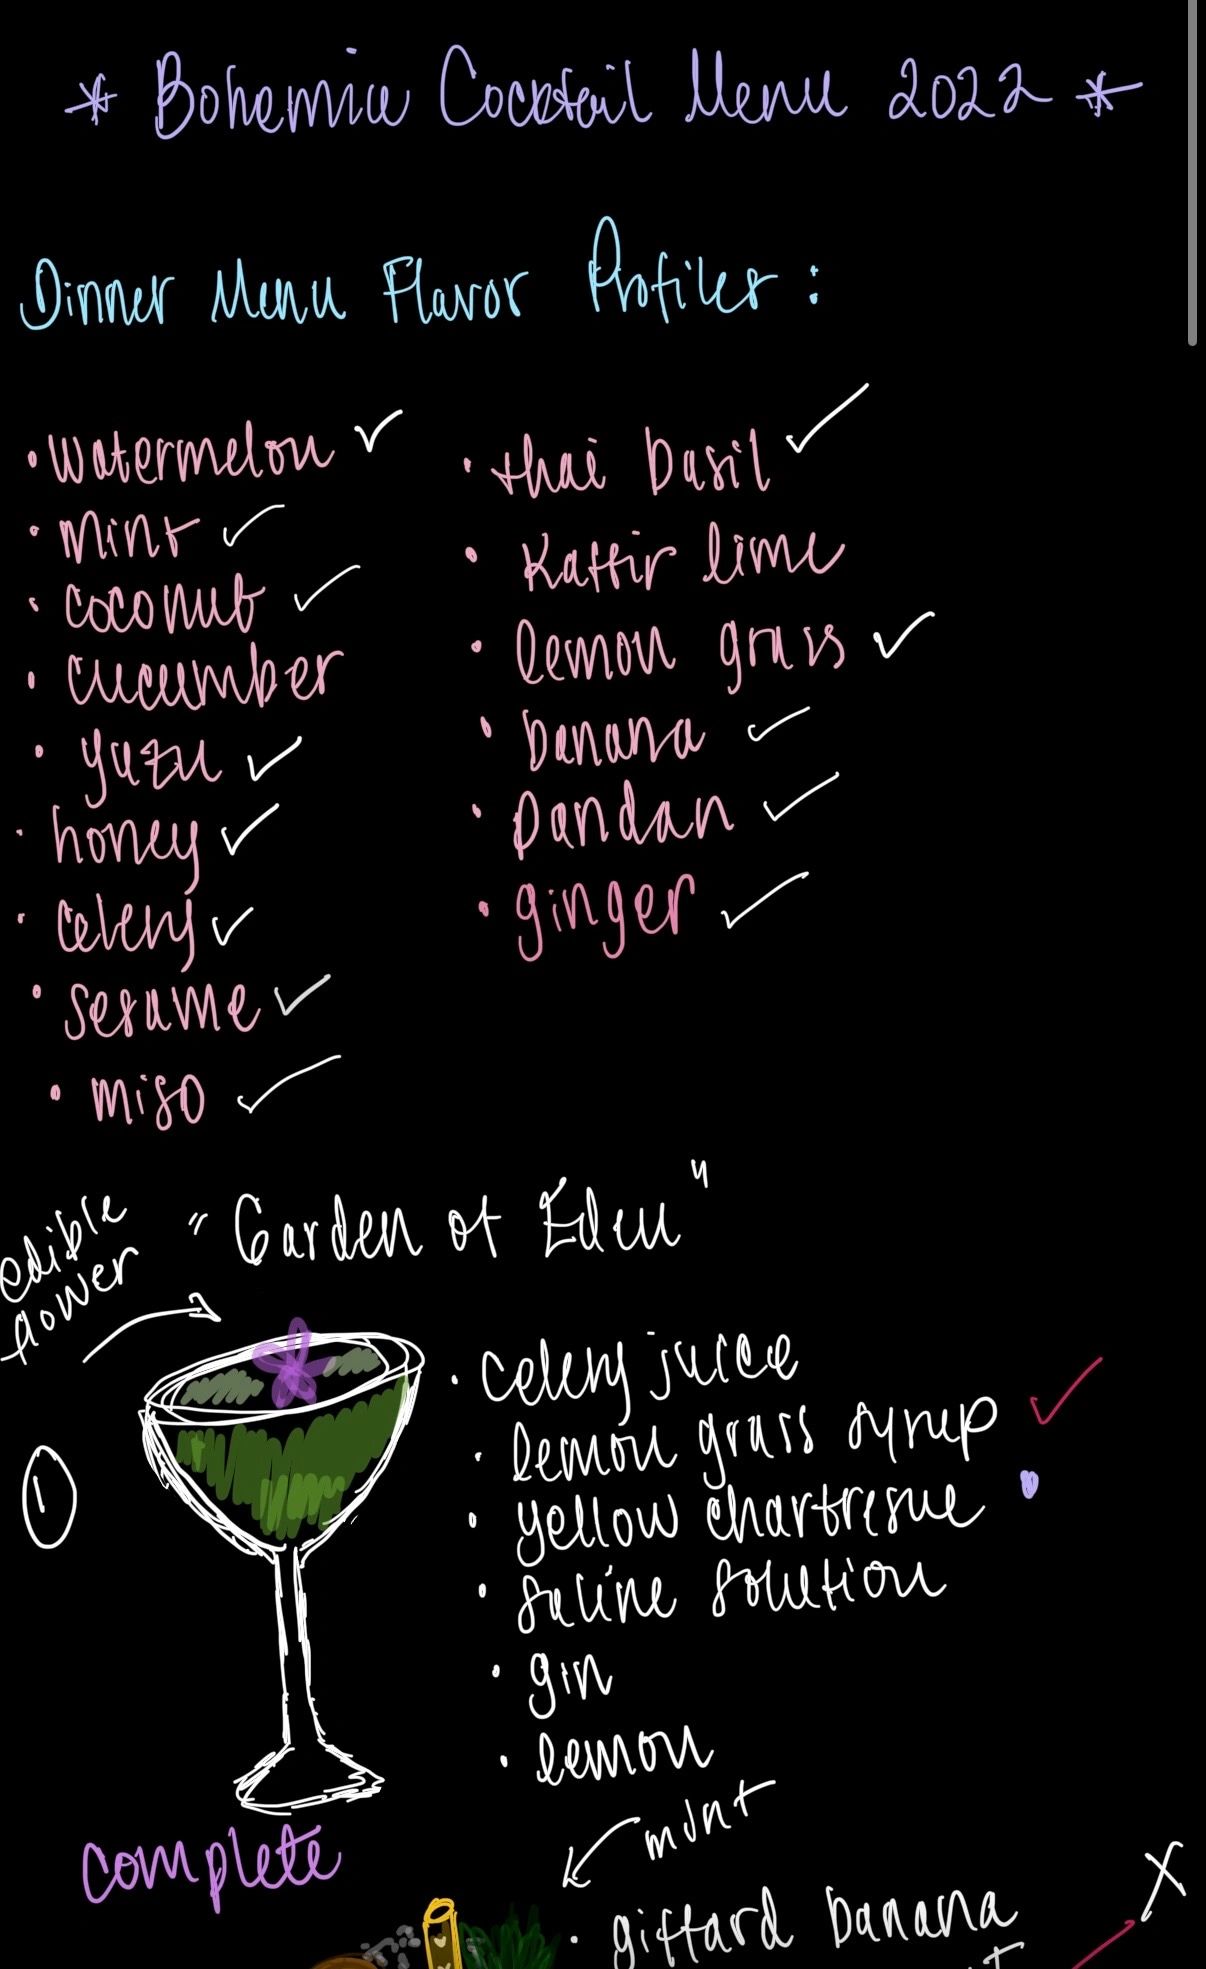 * Bohemia Cocktail Menu 2022 *
Dinner Menu Flavor Profiles:
• watermelon ✓
• mint ✓
• coconut ✓
• cucumber
• yuzu ✓
• honey ✓
• celery ✓
• sesame ✓
• miso ✓
• thai basil ✓
• Kaffir lime
• lemon grass ✓
• banana ✓
• pandan ✓
• ginger ✓
"Garden of Eden"
edible
flower
1
• celery juice
• lemon grass syrup ✓
• yellow chartresue •
• saline solution
• gin
• lemon
complete
mint
• giffard banana
X